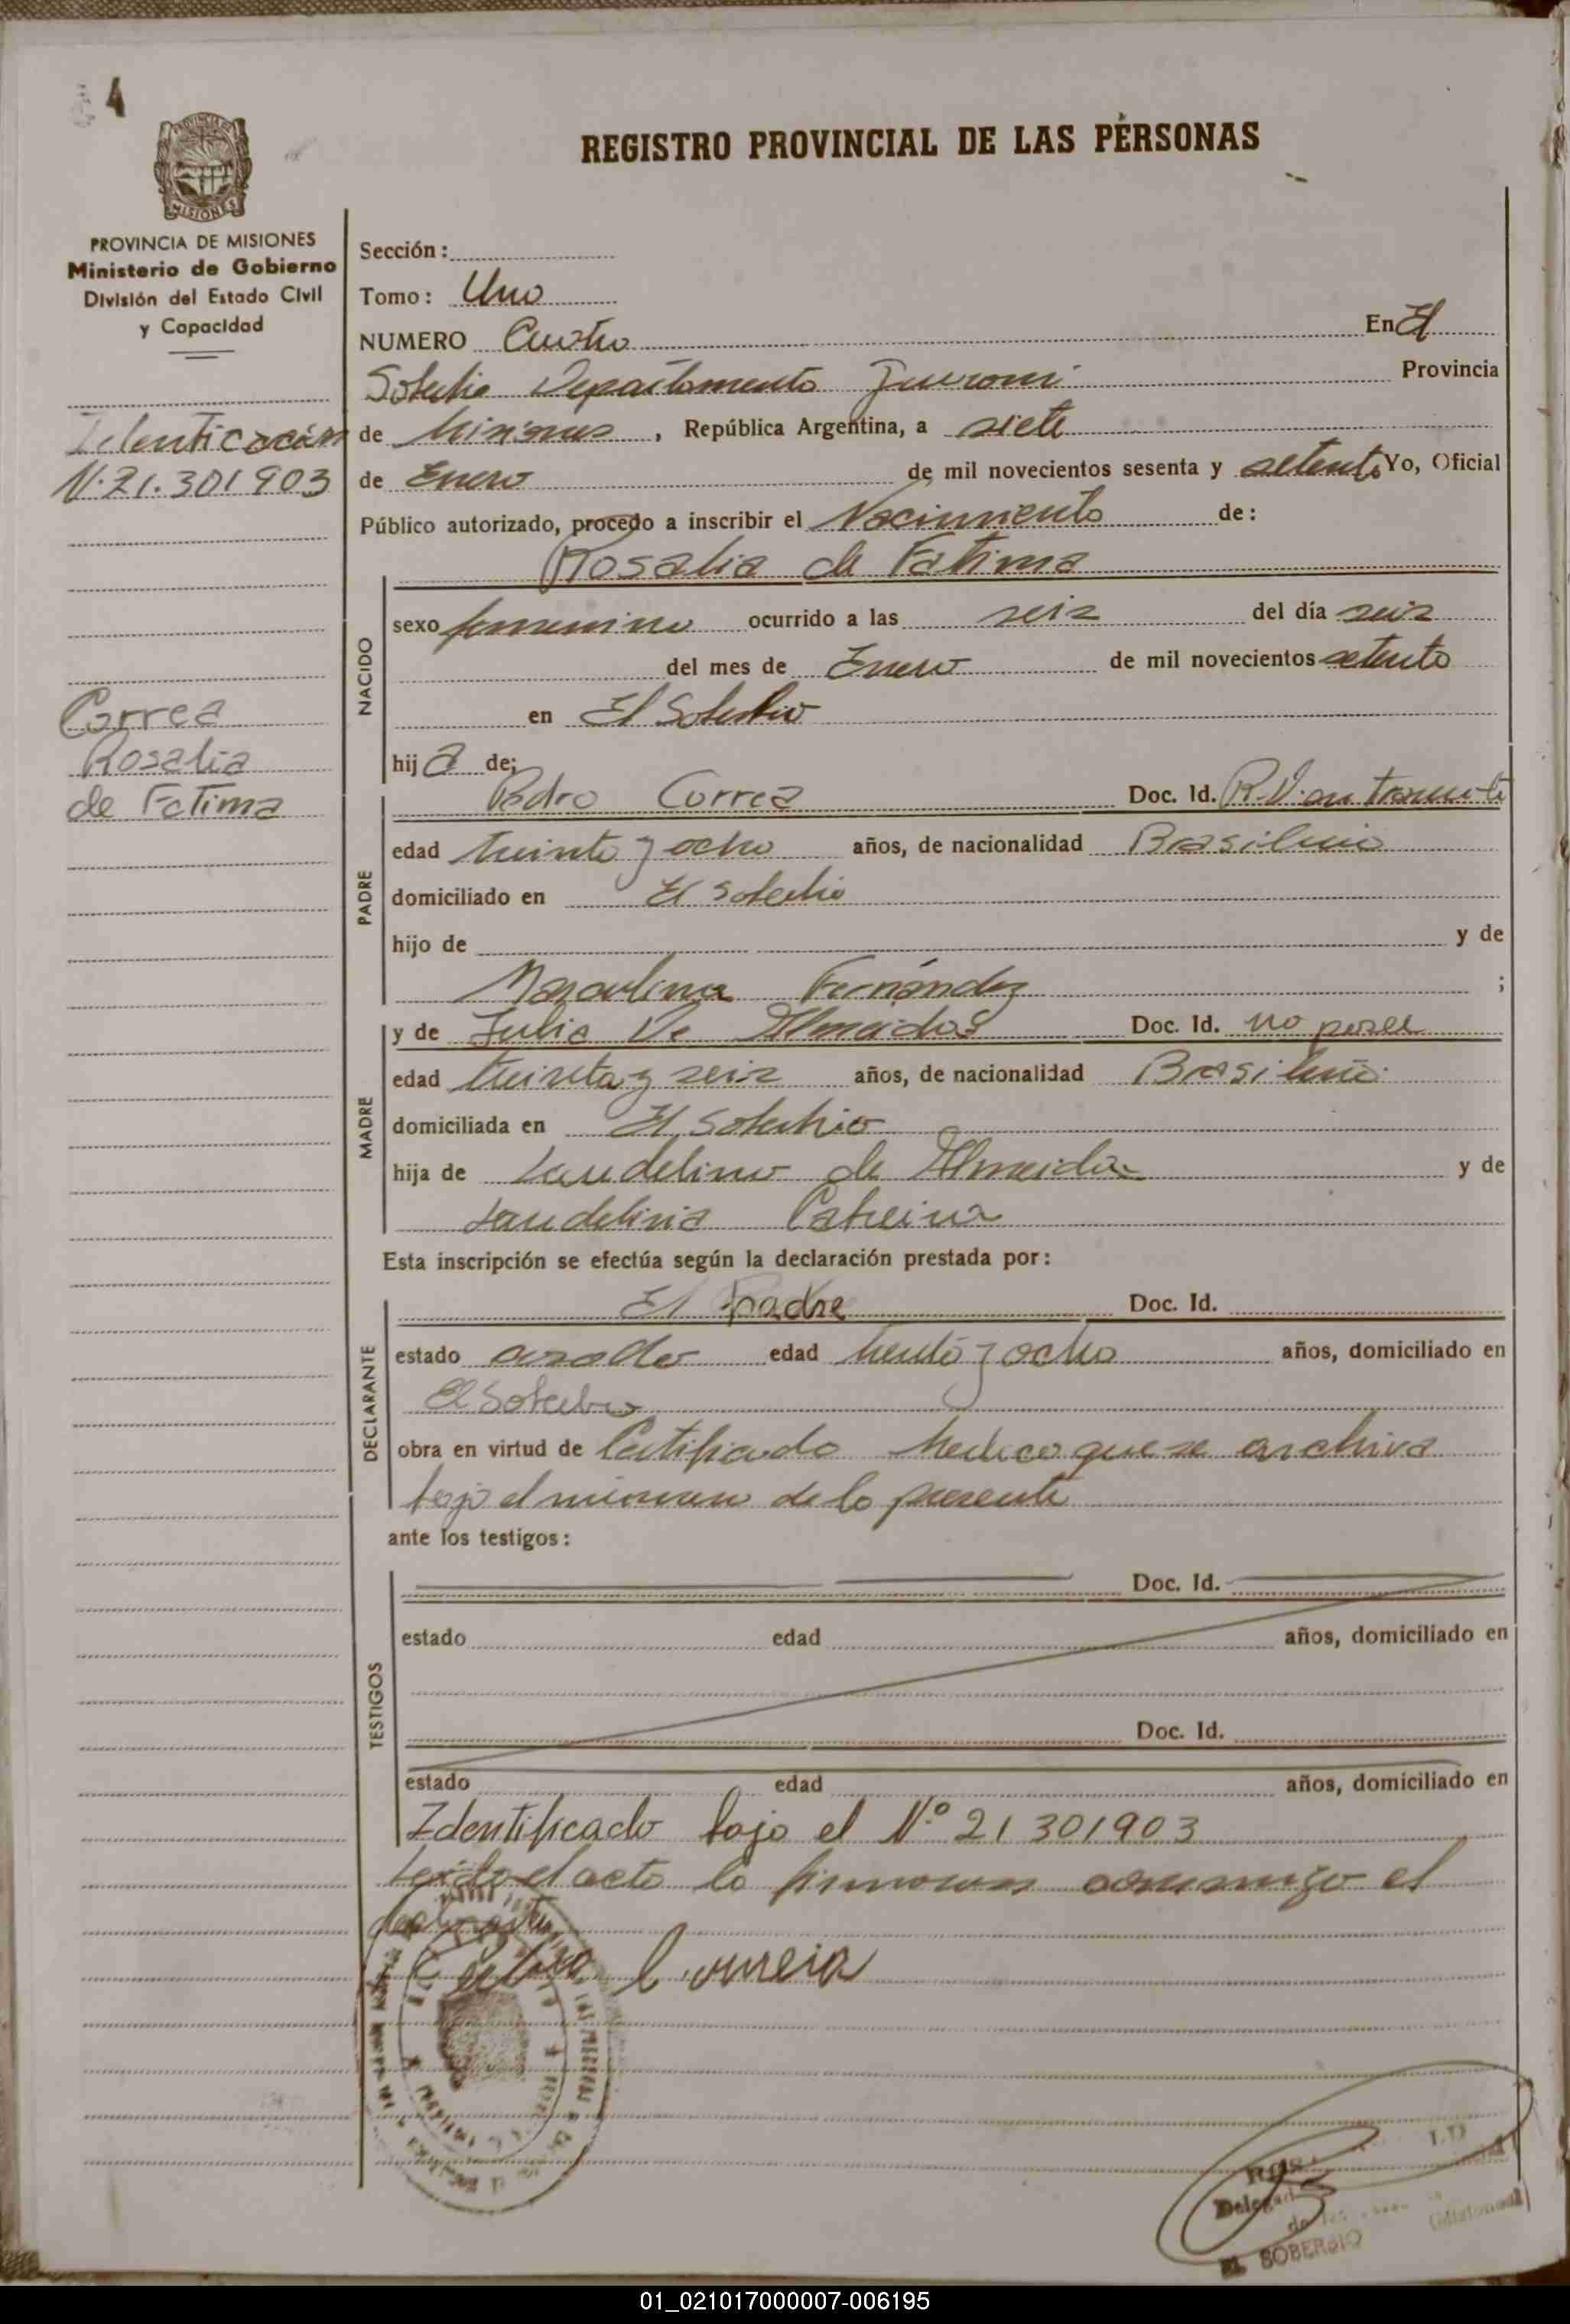 4
REGISTRO PROVINCIAL DE LAS PERSONAS
PROVINCIA DE MISIONES
Ministerio de Gobierno
División del Estado Civil
y Capacidad
Identicación
N. 21.301903
Correa
Rosalia
de Fatima
Sección:
Tomo: Uno
NUMERO Cuatro En El
Soberbio Departamento Guarani Provincia
de Misiones, República Argentina, a siete
de Enero de mil novecientos sesenta y setenta Yo, Oficial
Público autorizado, procedo a inscribir el Nacimiento de:
Rosalia de Fatima
NACIDO
sexo femenino ocurrido a las seis del día seis
del mes de Enero de mil novecientos setenta
en El Soberbio
hija de;
PADRE
Pedro Correa Doc. Id. R.D. en tramite
edad treinta y ocho años, de nacionalidad Brasileño
domiciliado en El Soberbio
hijo de y de
Marculina Fernández ;
MADRE
y de Julia De Almeida Doc. Id. no posee
edad treinta y seis años, de nacionalidad Brasileña
domiciliada en El Soberbio
hija de Laudelino de Almeida y de
Laudelinia
Esta inscripción se efectúa según la declaración prestada por:
DECLARANTE
El Padre Doc. Id.
estado casado edad treinta y ocho años, domiciliado en
El Soberbio
obra en virtud de Certificado Medico que se archiva
bajo el número de la presente
ante los testigos:
TESTIGOS
Doc. Id.
estado edad años, domiciliado en
Doc. Id.
estado edad años, domiciliado en
Identificado bajo el N.º 21 301903
Leido el acta la firman conmigo el
declarante
Correia
Delegad
EL SOBERBIO
01_021017000007-006195